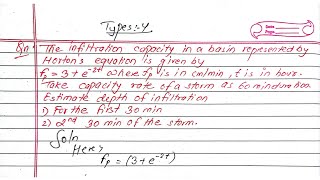 Types:-4
Qn The infiltration capacity in a basin represented by
Horton's equation is given by
fp = 3 + e^-2t where fp is in cm/min, t is in hours.
Take capacity rate of a storm as 60 min duration
Estimate depth of infiltration
1) For the first 30 min
2) 2nd 30 min of the storm.
Soln
Here,
fp = (3 + e^-2t)